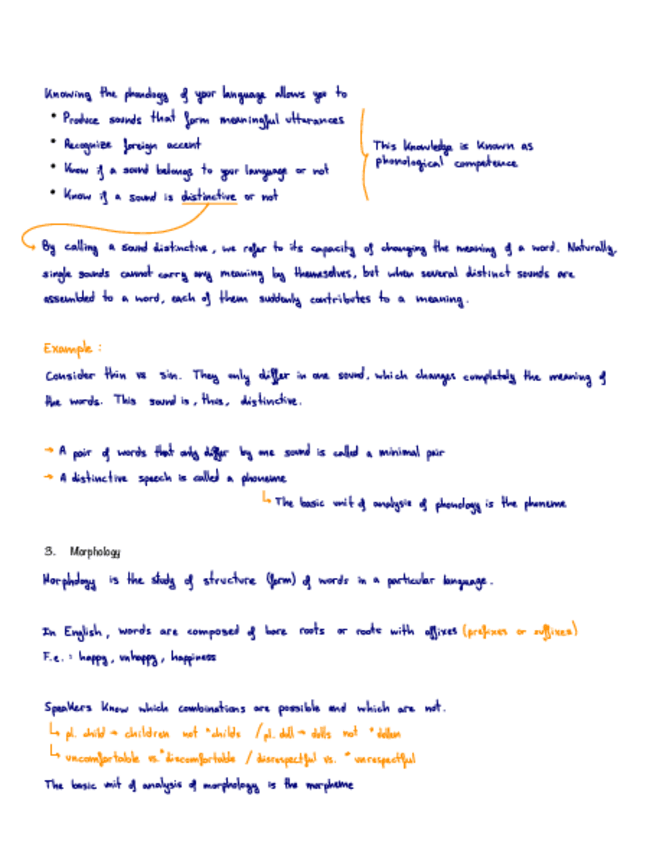 Knowing the phonology of your language allows you to
• Produce sounds that form meaningful utterances
• Recognize foreign accent
• Know if a sound belongs to your language or not
• Know if a sound is distinctive or not
This knowledge is known as
phonological competence
By calling a sound distinctive, we refer to its capacity of changing the meaning of a word. Naturally,
single sounds cannot carry any meaning by themselves, but when several distinct sounds are
assembled to a word, each of them suddenly contributes to a meaning.
Example:
Consider thin vs sin. They only differ in one sound, which changes completely the meaning of
the words. This sound is, thus, distinctive.
→ A pair of words that only differ by one sound is called a minimal pair
→ A distinctive speech is called a phoneme
↳ The basic unit of analysis of phonology is the phoneme
3. Morphology
Morphology is the study of structure (form) of words in a particular language.
In English, words are composed of bare roots or roots with affixes (prefixes or suffixes)
F.e.: happy, unhappy, happiness
Speakers know which combinations are possible and which are not.
↳ pl. child → children not *childs / pl. doll → dolls not *dollen
↳ uncomfortable vs. *discomfortable / disrespectful vs. *unrespectful
The basic unit of analysis of morphology is the morpheme